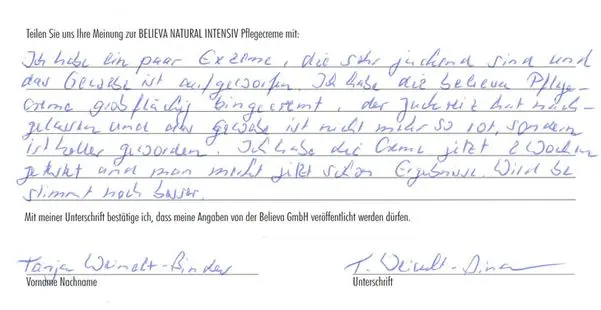 Teilen Sie uns Ihre Meinung zur BELIEVA NATURAL INTENSIV Pflegecreme mit:
Ich habe ein paar Exzeme, die sehr juckend sind und
das Gewebe ist aufgeworfen. Ich habe die believa Pflege-
creme großflächig eingecremt, der Juckreiz hat nach-
gelassen und das gewebe ist nicht mehr so rot, sondern
ist heller geworden. Ich habe die Creme jetzt 2 Wochen
getestet und man jetzt schon Ergebnisse. Wird be
stimmt noch besser.
Mit meiner Unterschrift bestätige ich, dass meine Angaben von der Believa GmbH veröffentlicht werden dürfen.
Tanja Weindt-Binder T.
Vorname Nachname Unterschrift